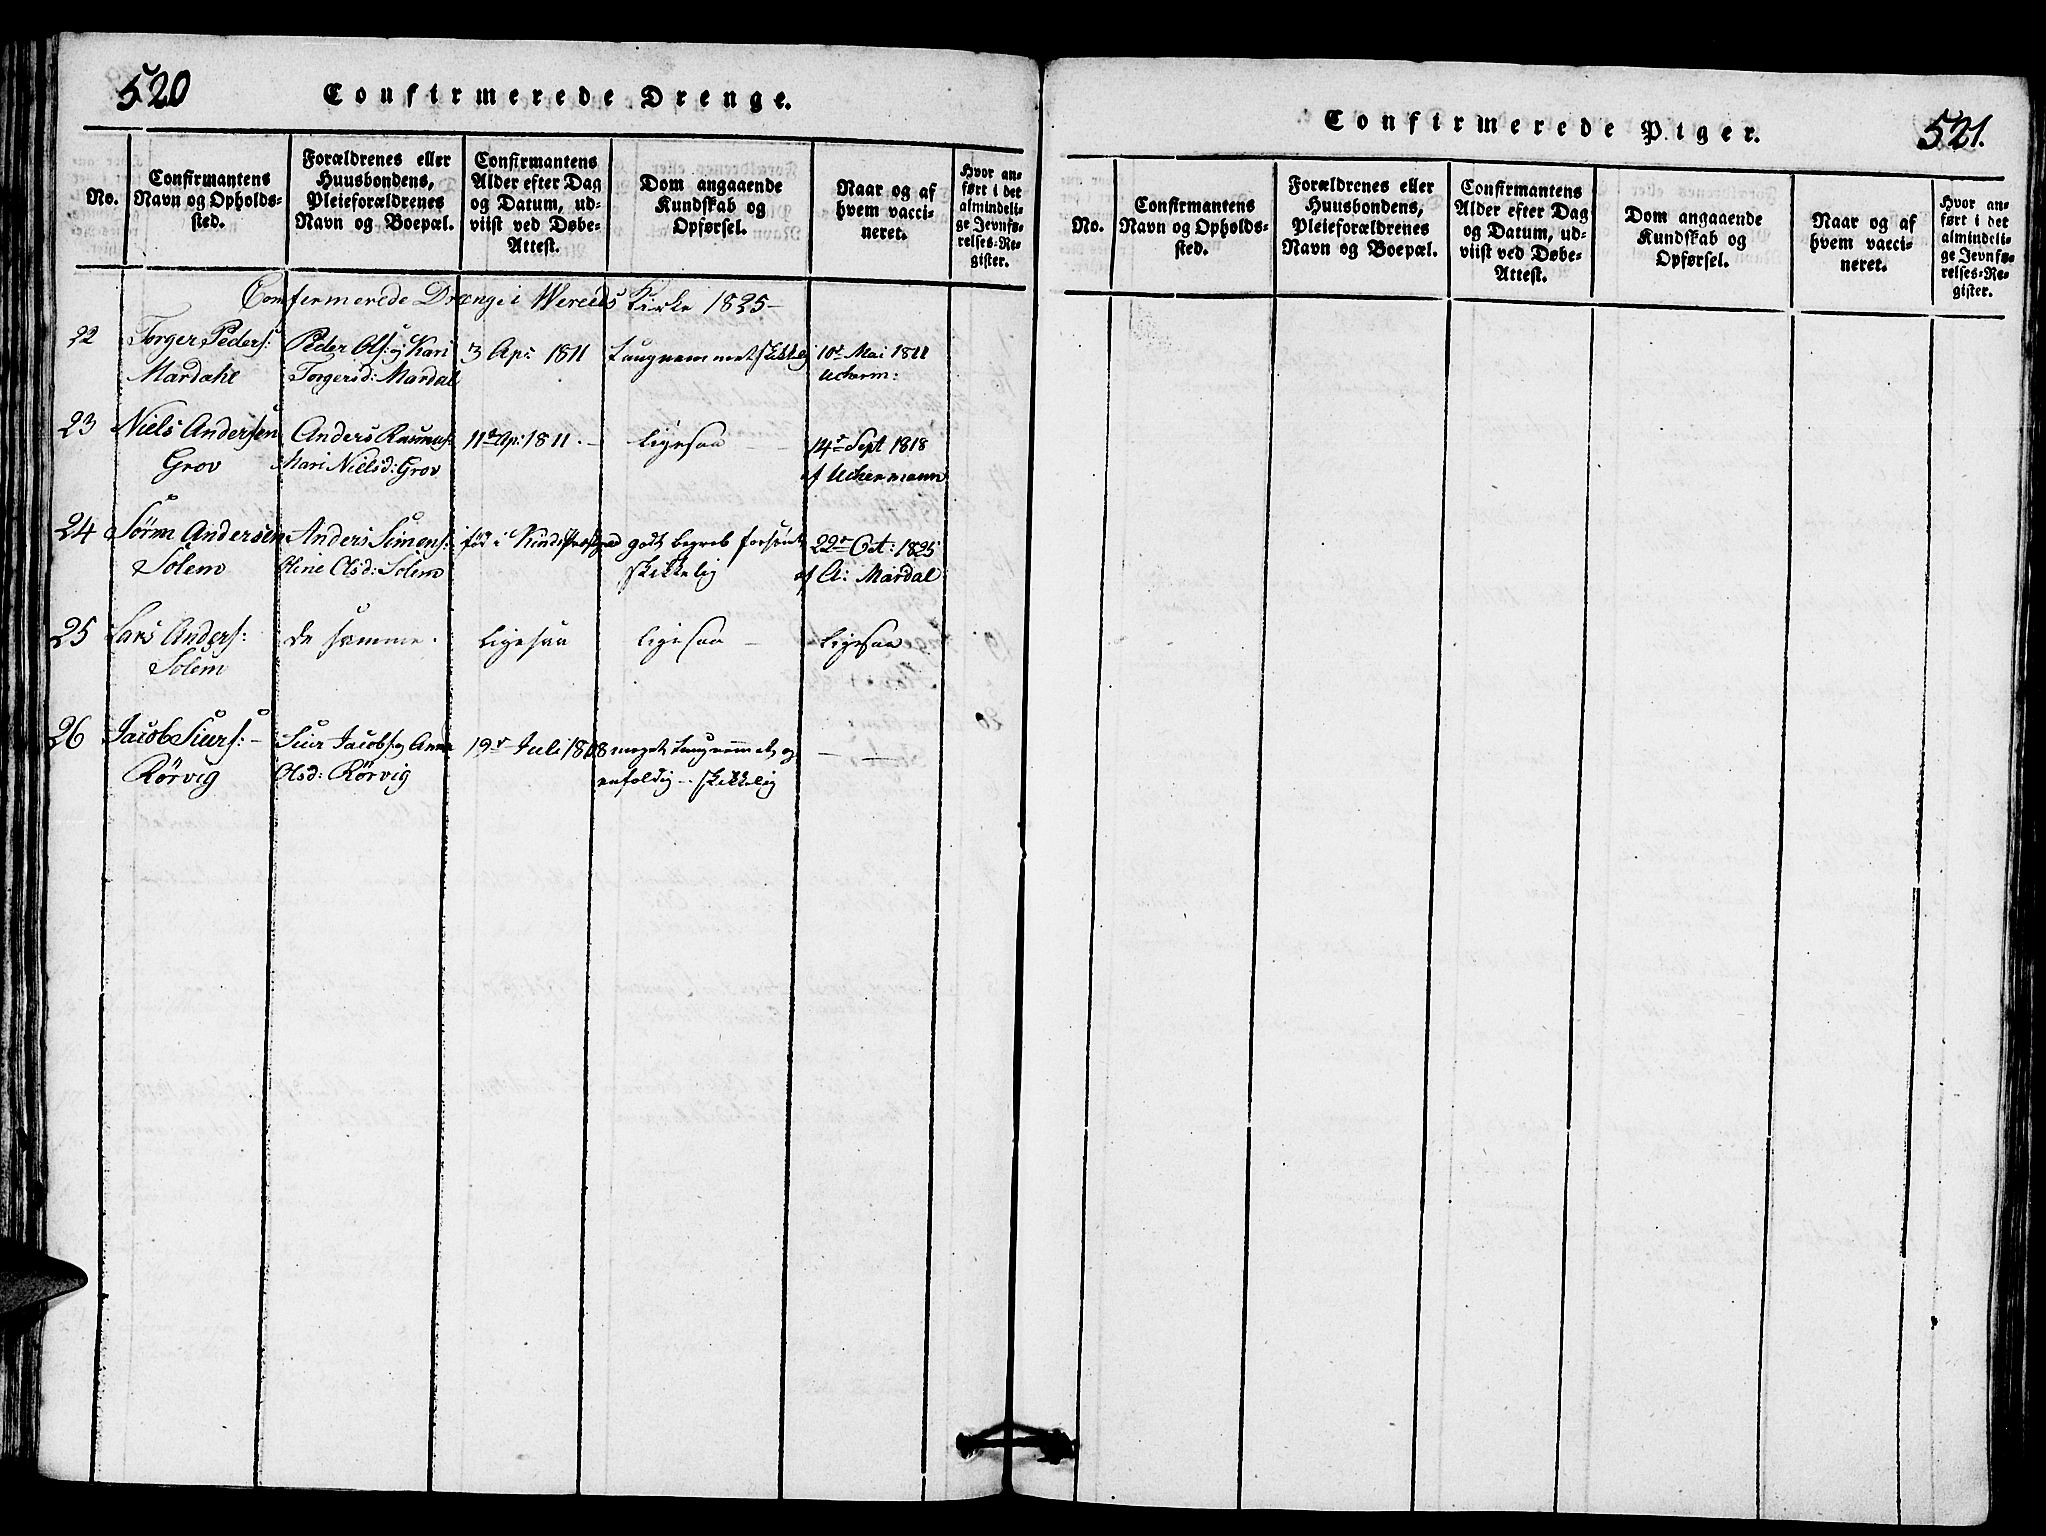 520
Confirmerede Drenge.
No.
Confirmantens
Navn og Opholds-
sted.
Forældrenes eller
Huusbondens,
Pleieforældrenes
Navn og Boepæl.
Confirmantens
Alder efter Dag
og Datum, ud-
viist ved Døbe-
Attest.
Dom angaaende
Kundskab og
Opførsel.
Naar og af
hvem vacci-
neret.
Hvor an-
ført i det
almindeli-
ge Jevnfø-
relses-Re-
gister.
Confirmerede Drenge i Kirke 1825
22
Torger Peders:
Mardahl
Peder Ols: og Kari
Torgersd: Mardal
3 Apr 1811
tungnemmet skikkelig
10de Mai 1811
Ucherm:
23
Niels Andersen
Grov
Anders Rasmus:
Mari Nielsd: Grov
11te Ap: 1811.
ligesaa
14de Sept 1818
af Uchermann
24
Sören Andersen
Solem
Anders Simens:
Oline Olsd: Solem
fød i
godt begreb forsömt
skikkelig
22de Oct: 1825
af A: Mardal
25
Lars Anders:
Solem
de samme.
ligesaa
ligesaa
ligesaa
26
Jacob Siurs:
Rörvig
Siur Jacobs: og Anna
Olsd: Rörvig
19de Juli 1808
meget tungnemmet og
enfoldig - skikkelig
Confirmerede Piger.
521.
No.
Confirmantens
Navn og Opholds-
sted.
Forældrenes eller
Huusbondens,
Pleieforældrenes
Navn og Boepæl.
Confirmantens
Alder efter Dag
og Datum, ud-
viist ved Døbe-
Attest.
Dom angaaende
Kundskab og
Opførsel.
Naar og af
hvem vacci-
neret.
Hvor an-
ført i det
almindeli-
ge Jevnfø-
relses-Re-
gister.